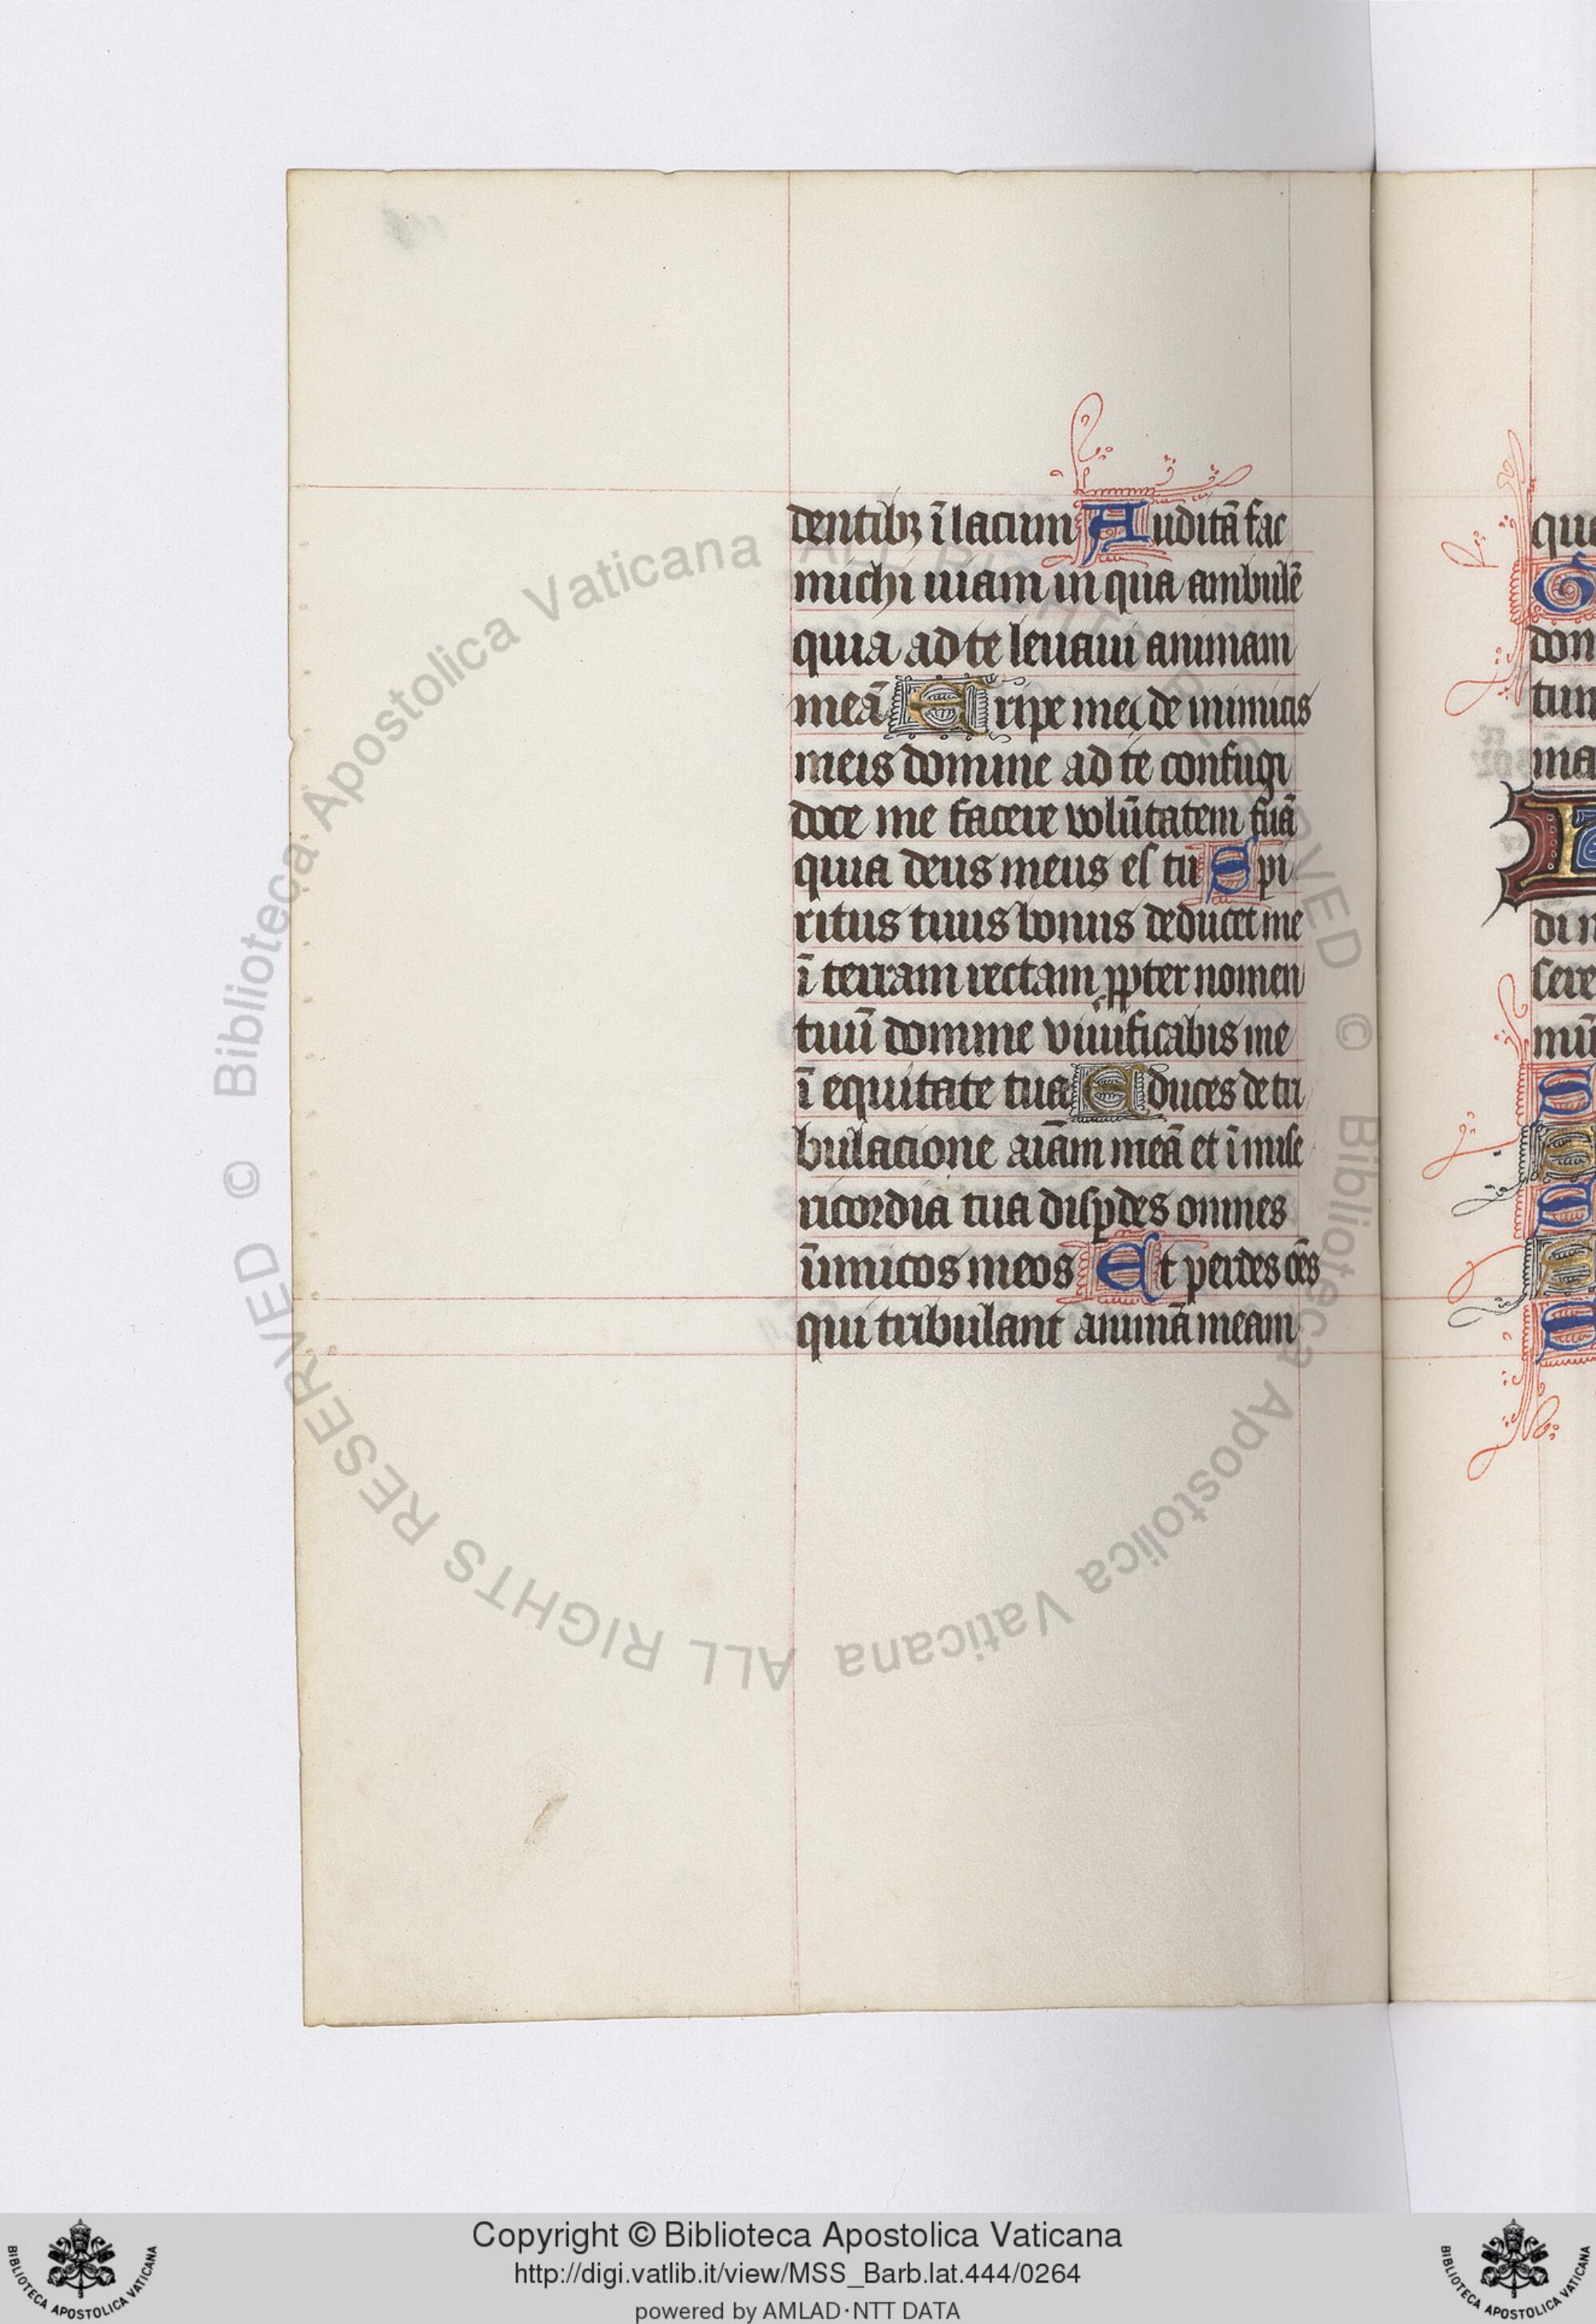 dentibꝫ ī lacum Auditā fac
michi uiam in qua ambulē
quia ad te leuaui animam
meā Eripe me de inimicis
meis domine ad te confugi
doce me facere volūtatem tuā
quia deus meus es tu Spi
ritus tuus bonus deducet me
ī terram rectam ꝓpter nomen
tuū domine viuificabis me
ī equitate tua Educes de tri
bulacione aīam meā et ī mise
ricordia tua disꝑdes omnes
īimicos meos Et perdes oēs
qui tribulant animā meam
qui
G
don
tun
ma
di n
sere
mū
© Biblioteca Apostolica Vaticana ALL RIGHTS RESERVED © Biblioteca Apostolica Vaticana ALL RIGHTS RESERVED
Copyright © Biblioteca Apostolica Vaticana
http://digi.vatlib.it/view/MSS_Barb.lat.444/0264
powered by AMLAD·NTT DATA
BIBLIOTECA APOSTOLICA VATICANA
BIBLIOTECA APOSTOLICA VATICANA